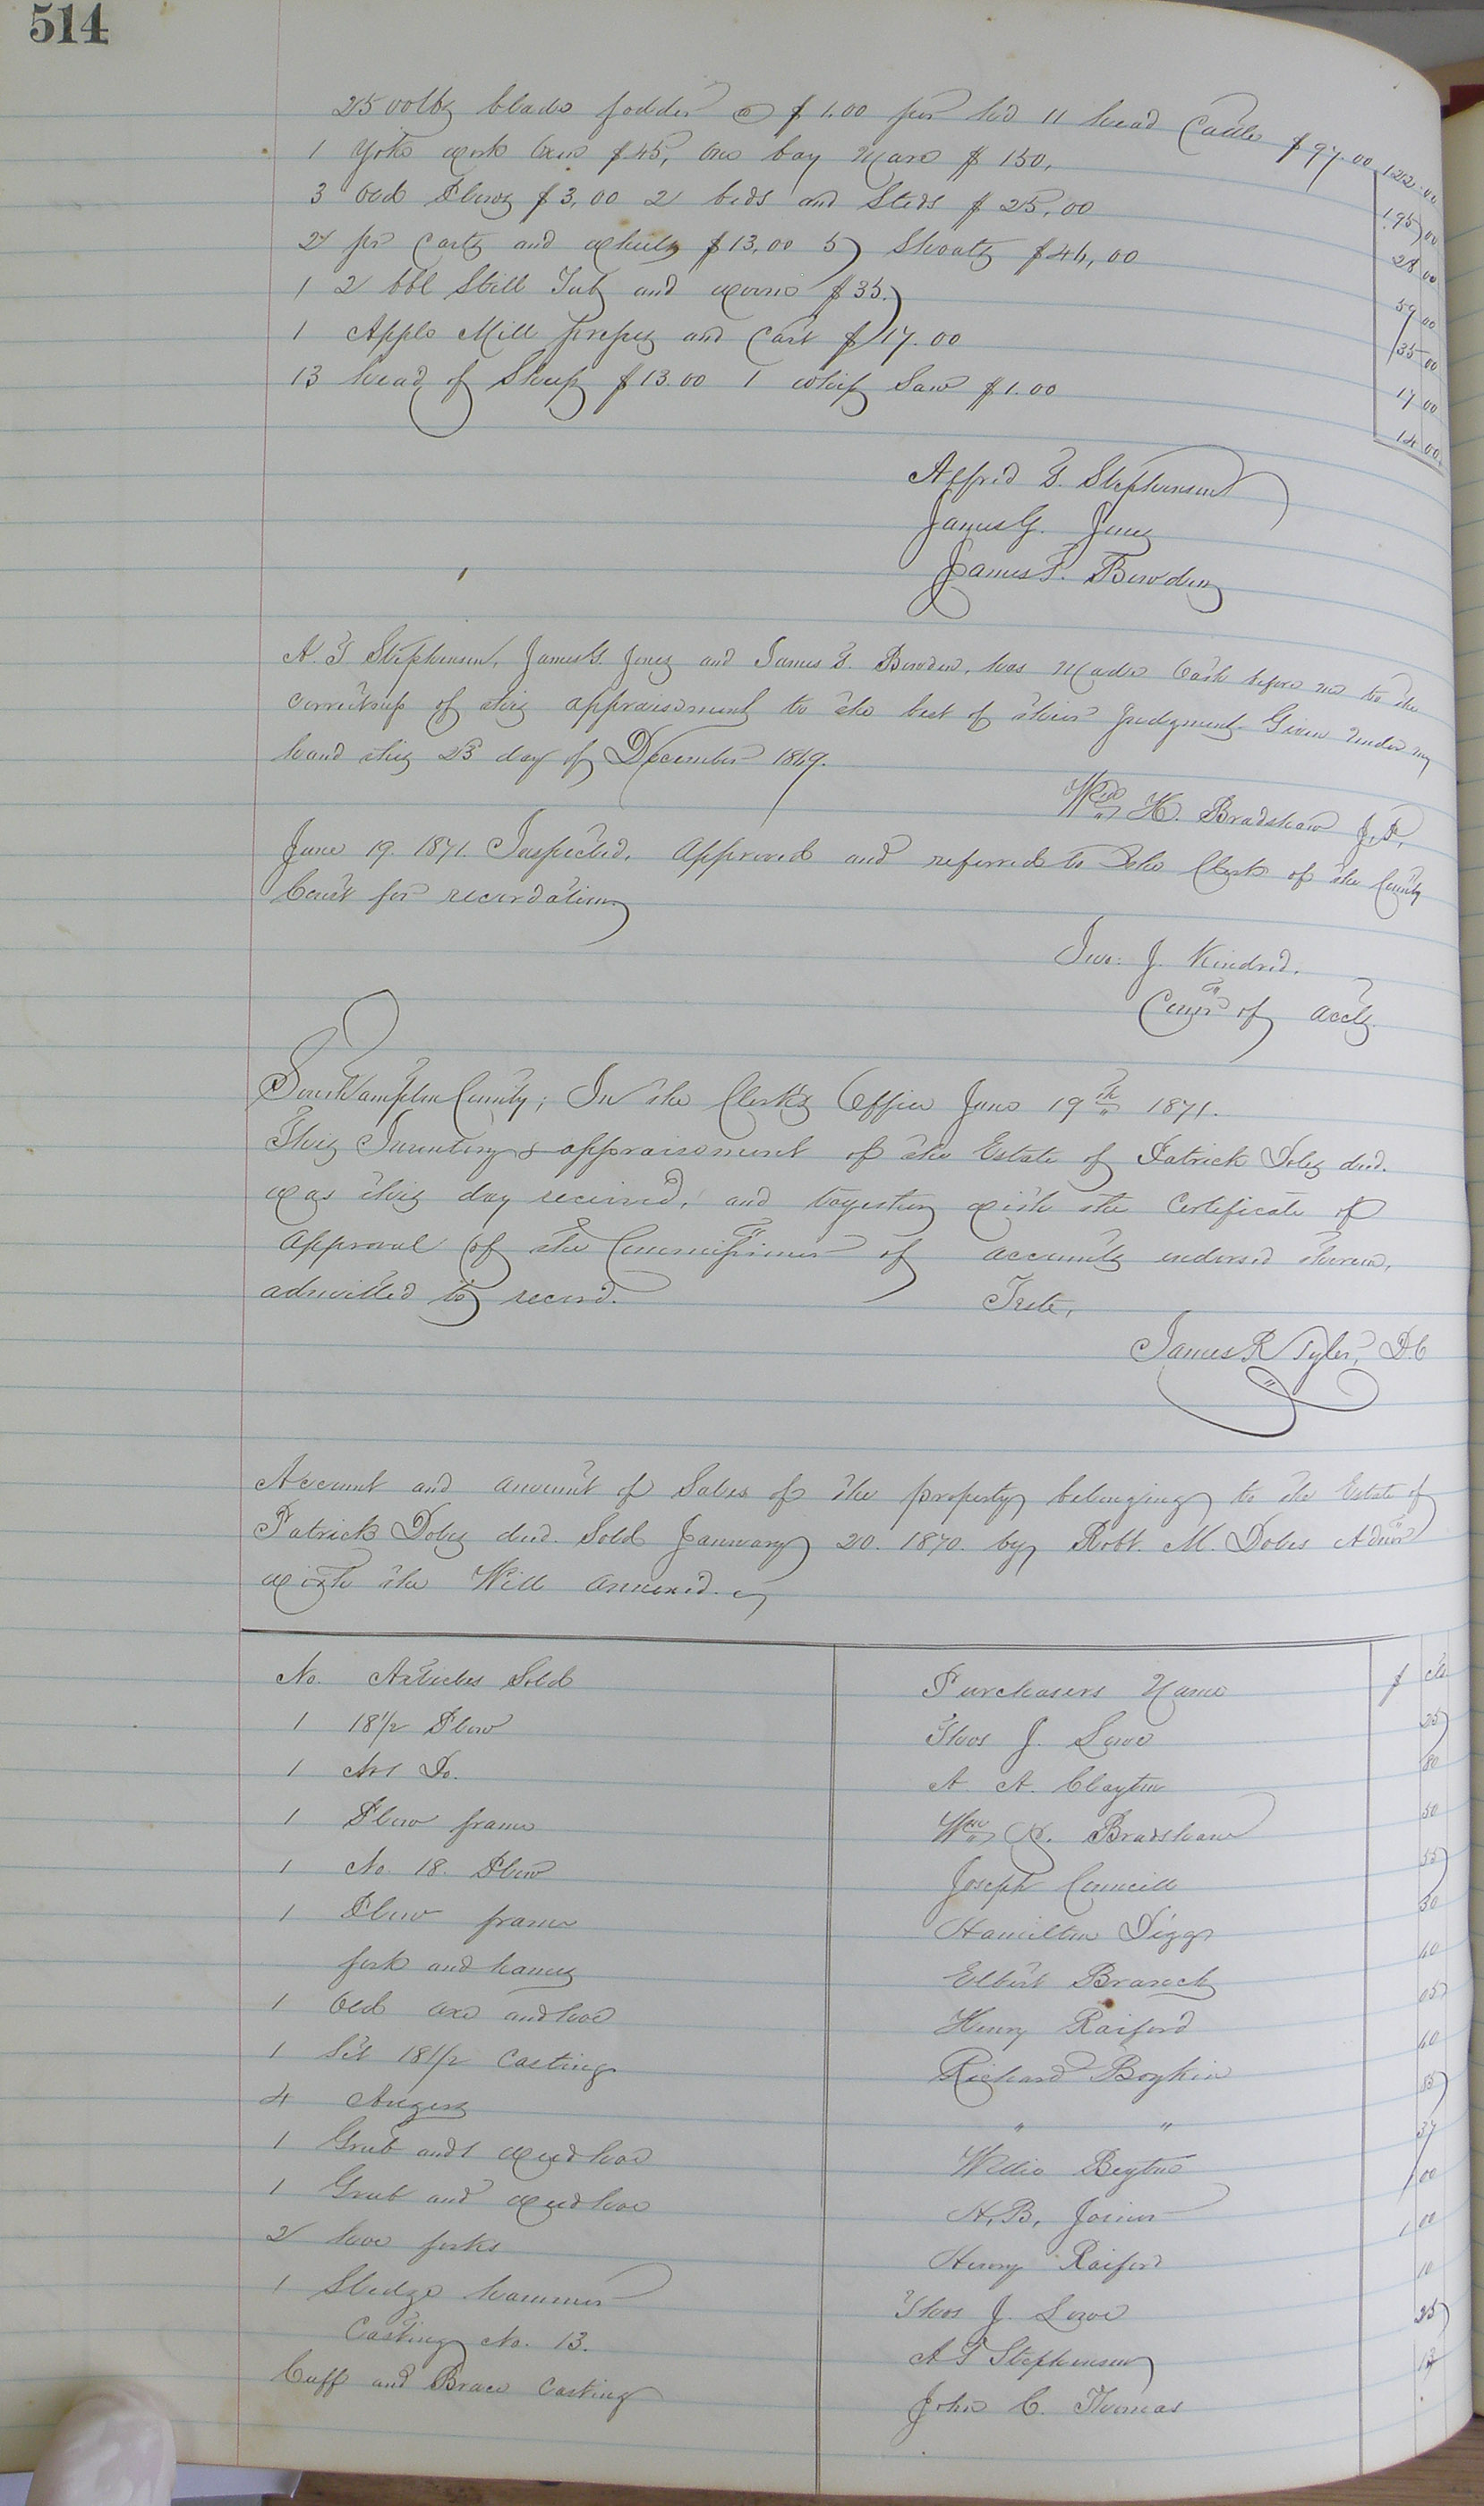 514
2500 lbs blade fodder @ $1.00 per hd 11 head Cattle $97.00 122.00
1 Yoke work Oxen $45, One bay Mare $150, 195.00
3 Old Plows $3,00 2 beds and Steds $25,00 28 00
2 pr Carts and wheels $13,00 5 Shoats $46,00 59 00
1 2 bbl Still Tub and worm $35. 35 00
1 Apple Mill press and Cart $17.00 17 00
13 head of Sheep $13.00 1 whip Saw $1.00 14 00
Alfred T. Stephenson
James G. Jones
James T. Bowden
A. T Stephenson, James G. Jones and James T. Bowden, has made Oath before me to the
correctness of this appraisement to the best of their Judgment. Given under my
hand this 23 day of December 1869.
Wm H. Bradshaw J.P.
June 19. 1871. Inspected, Approved and referred to the Clerk of the County
Court for recordation
Jno. J. Kindred.
Comr of accts.
Southampton County; In the Clerk's Office June 19th 1871.
This Inventory & appraisement of the Estate of Patrick Doles decd.
was this day received, and together with the Certificate of
Approval of the Commissioner of accounts endorsed thereon,
admitted to record. Teste,
James R Tyler, D.C
Account and amount of Sales of the property belonging to the Estate of
Patrick Doles decd. Sold January 20. 1870. by Robt. M. Doles Admr
with the Will annexed.
No. Articles Sold Purchasers Name $ cts
1 18 1/2 Plow Thos J. Lowe 25
1 No 1 Do. A. A. Clayton 80
1 Plow frame Wm H. Bradshaw 50
1 No. 18. Plow Joseph Councill 55
1 Plow frame Hamilton Diggs 30
fork and hames Elbert Branch 40
1 Old axe and hoe Henry Raiford 05
1 Set 18 1/2 Casting Richard Boykin 60
4 Augers " " 85
1 Grub and 1 weed hoe Willie Beyton 37
1 Grub and weed hoe H. B. Joiner 1 00
2 hoe forks Henry Raiford 1 00
1 Sledge hammer Thos J. Lowe 10
Casting No. 13. A T Stephenson 25
Cuff and Brace Casting John C. Thomas